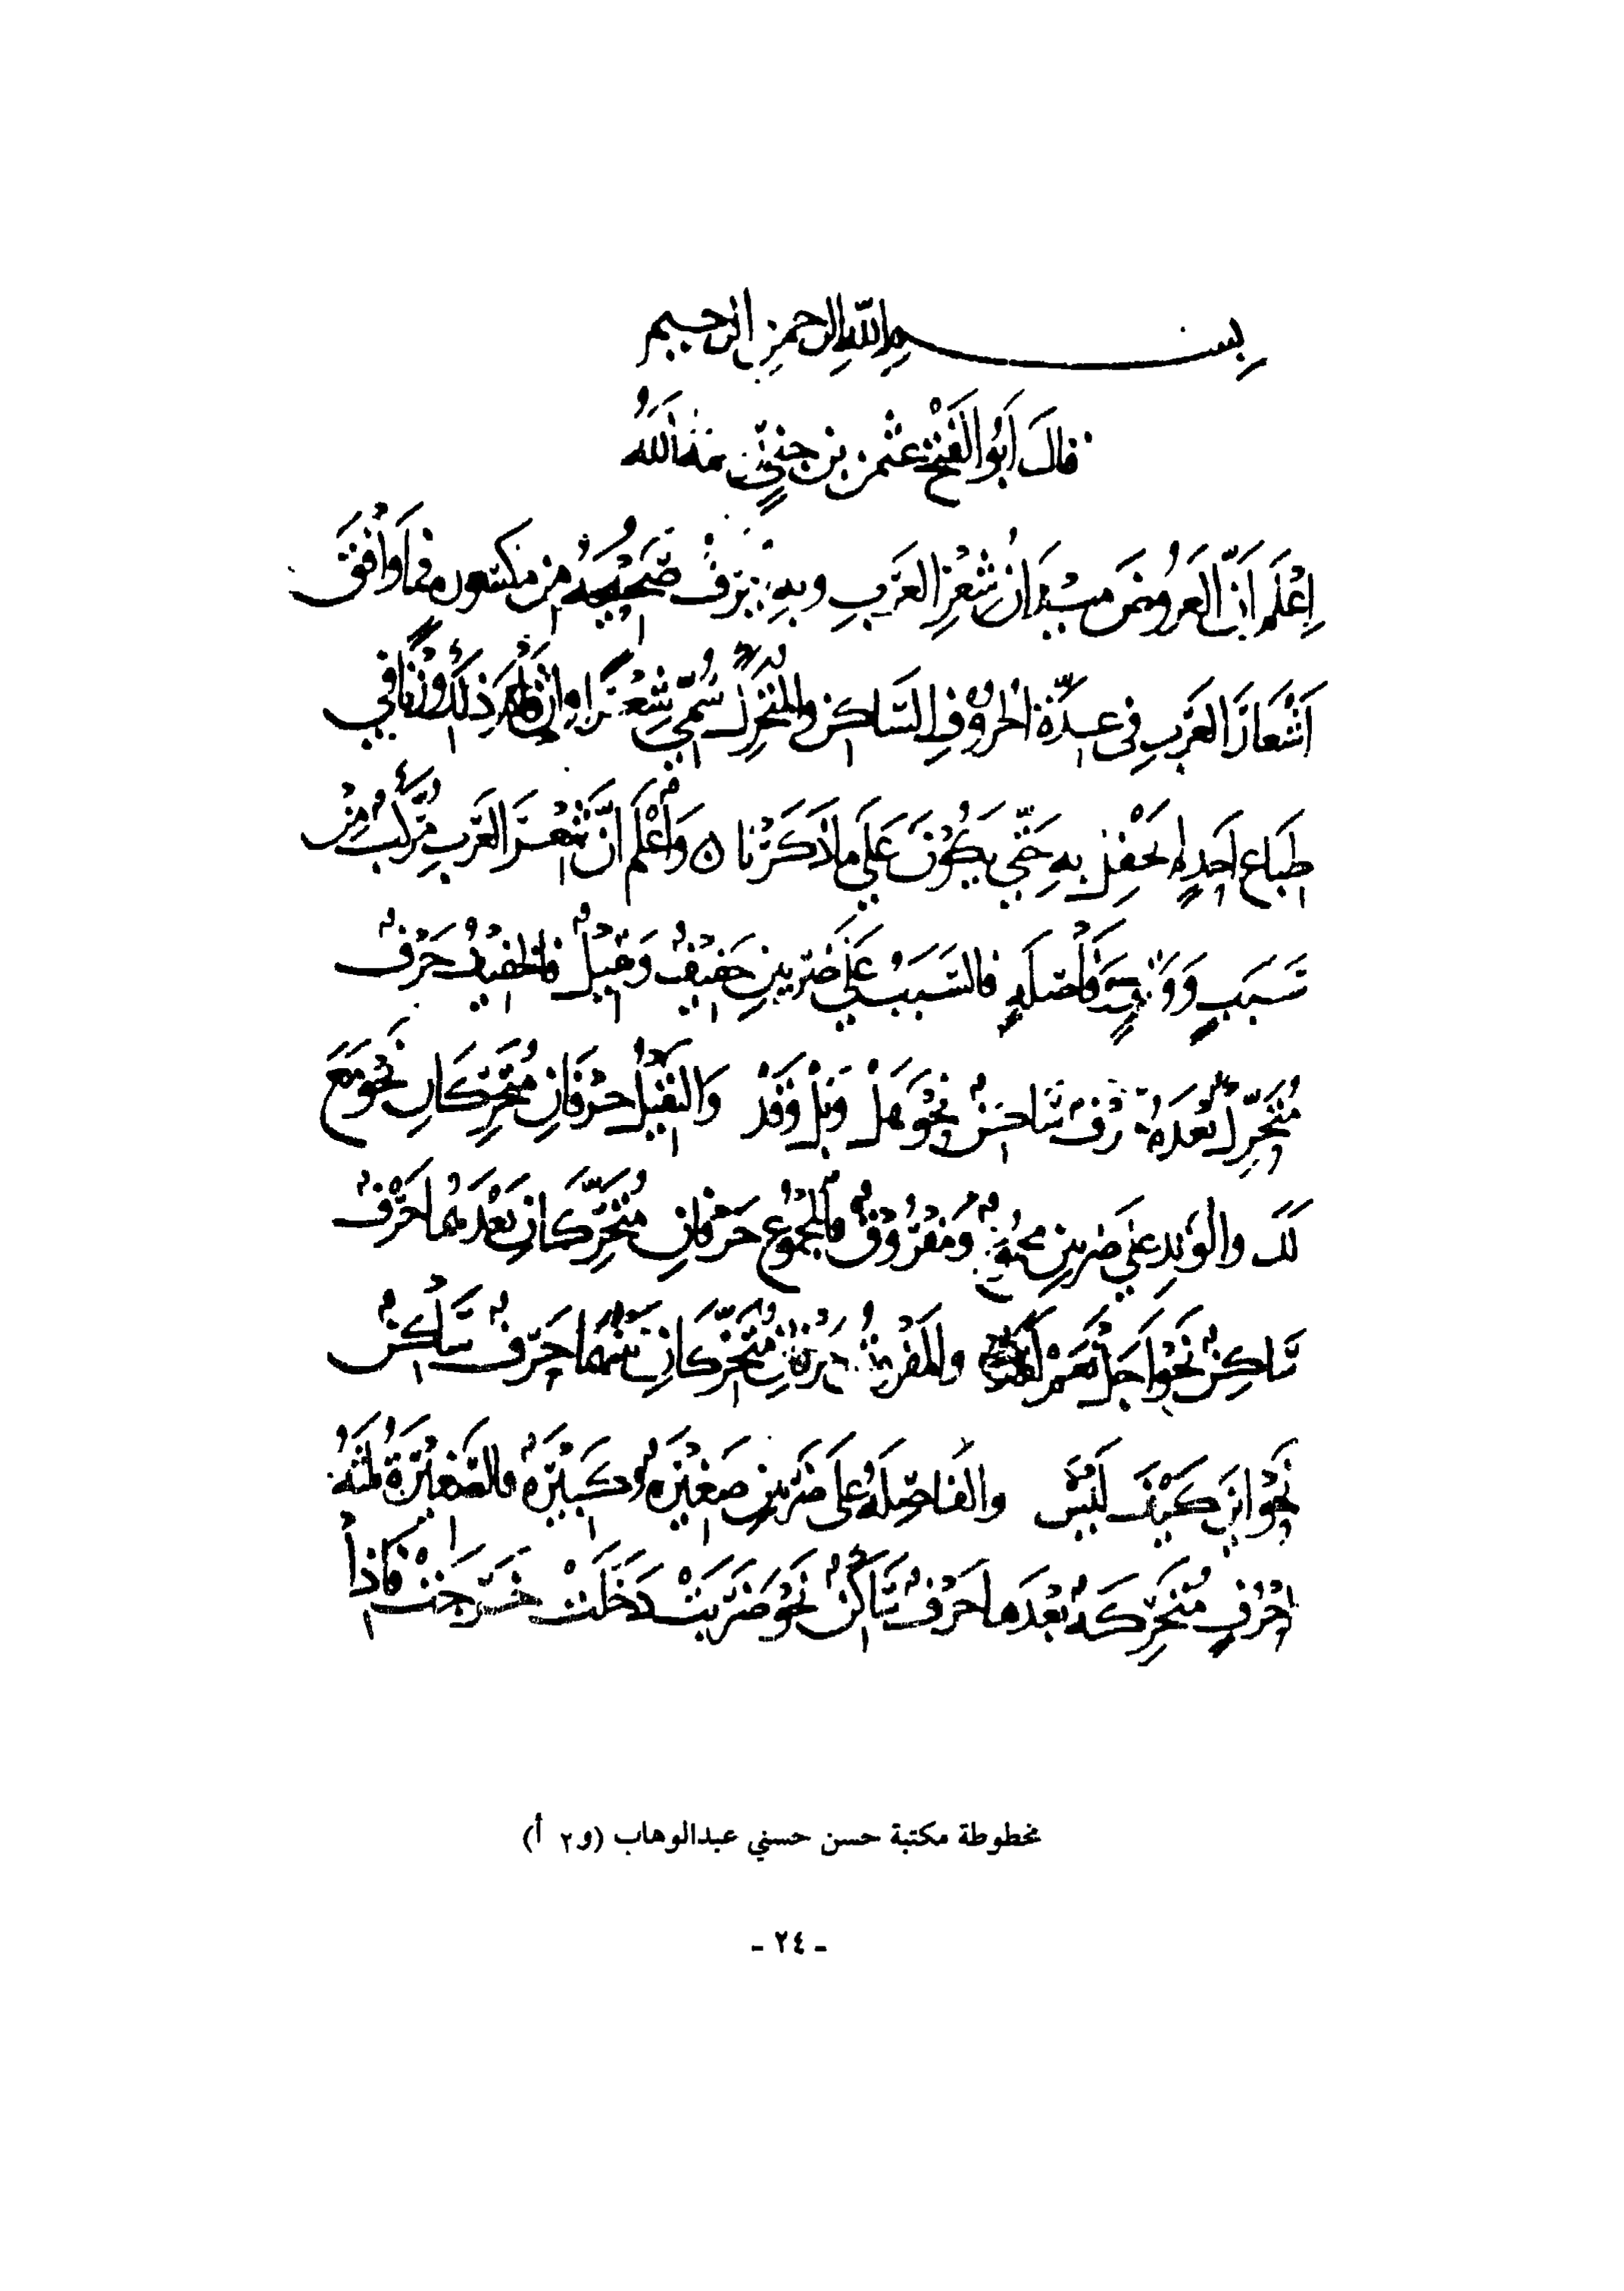 بسم الله الرحمن الرحيم
قَالَ أَبُو الْفَتْحِ عثمن بن جِنّيٍ رحمه اللهُ
اِعْلَم أَنّ العَروضَ ميزَانُ شِعْرِ العَرَبِ وبِهِ يعرف صَحِيحُهُ مِن مكسوره فما وَافَقَ
أَشْعَارَ العَرَبِ فِي عِدّةِ الحروفِ السَّاكِن والمتحرِّك سُمّي شِعْرًا وإن ذَلِكَ وَزْنًا في
طِبَاع أحَدٍ لم يحْفِل بهِ حَتّى يَكُونَ عَلَى ما ذَكَرْنَا ٥ وَاعْلَم أنّ شعْرَ العَرَبِ مُرَكّب مِنْ
سَبَبٍ وَوَتدٍ وَفَاصلَةٍ فالسَّبَبُ عَلى ضَربَينِ خَفِيفٌ وَثَقِيلٌ فالخفيفُ حَرْفٌ
مُتَحَرِّك بَعْدَهُ حرْفٌ سَاكِنٌ نَحْوُ هَلْ وَبَلْ وَقَدْ وَالثّقيلُ حَرْفَانِ مُتَحَرِّكَانِ نحْو مَعَ
لَكَ والوَتِدِ عَلى ضَربَينِ مجمُوعٌ وَمَفْرُوقٌ فالمَجْمُوعُ حَرْفَانِ مُتَحَرِّكَانِ بَعْدَهُمَا حَرْفٌ
سَاكِنٌ نَحْو أجَلْ نَعَمْ والمَفْروقُ حَرْفَانِ مُتَحَرِّكَانِ بَيْنَهُمَا حَرْفٌ سَاكِنٌ
نَحْوُ أيْنَ كَيْفَ لَيْسَ والفَاصِلَةُ عَلَى ضَرْبَينِ صَغِيْرَةٌ وكَبِيْرَةٌ فالصَّغِيْرَةُ ثلثَةُ
أحْرُفٍ مُتَحَرِّكَةٌ بَعْدَها حَرْفٌ سَاكنٌ نَحْوُ ضَرَبَتْ دَخَلَتْ خَرَجَتْ فَإِذَا
مخطوطة مكتبة حسن حسني عبدالوهاب (و٢ أ)
- ٢٤ -